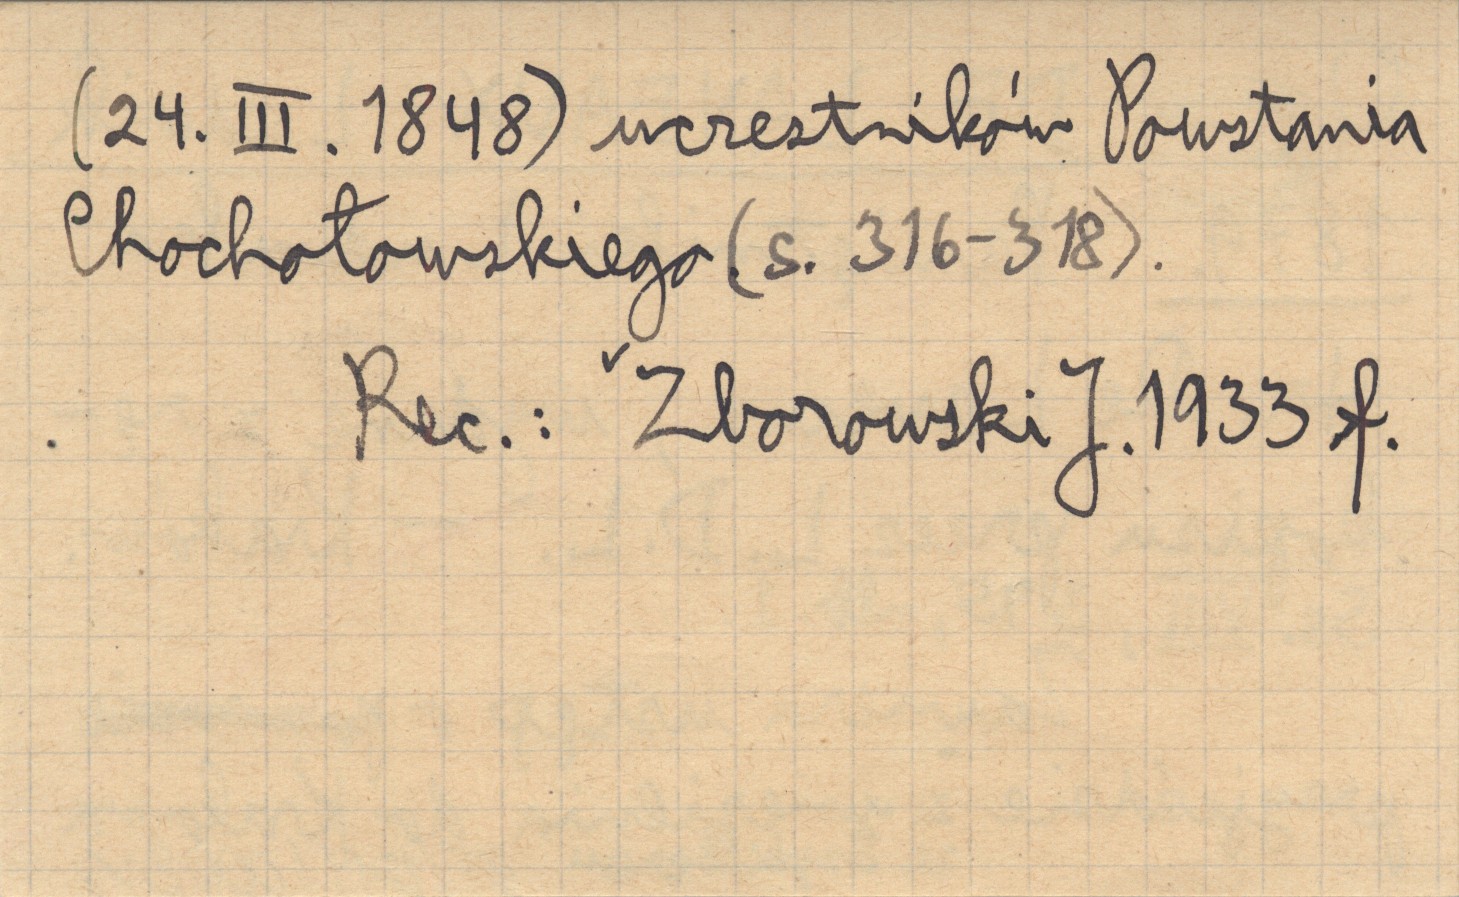 (24. III. 1848) uczestników Powstania
Chochołowskiego (s. 316-318).
Rec.: Zborowski J. 1933 f.